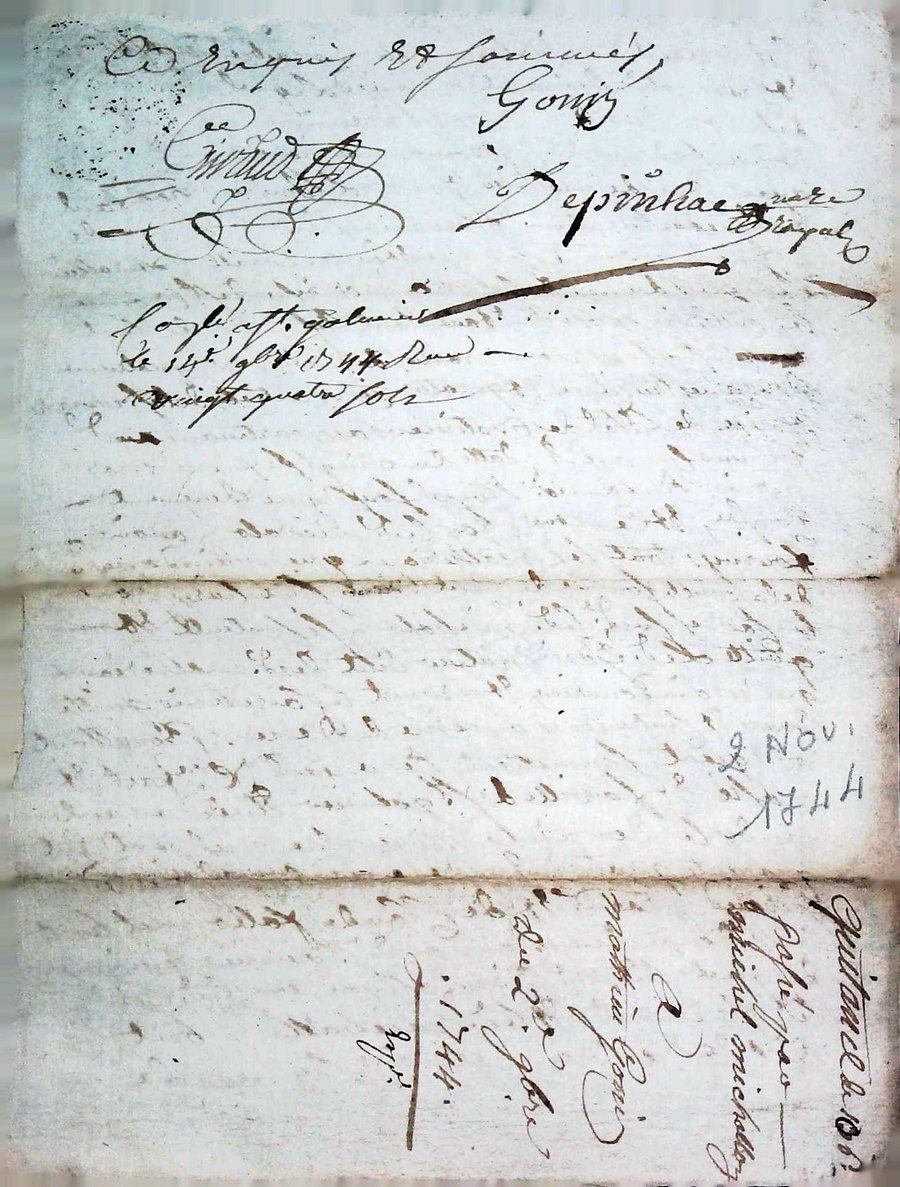 Ce Enquis Et Sommés
Gonin
Giraud
Depinhac nore
royal
Conlé a St. galmier
le 14e. 9bre 1744 Reçu
vingt quatre sols
2 NOV.
1744
quittance de
passé par
michel michollon
a
mathieu Gonin
du 2e 9bre
1744.
Expé.